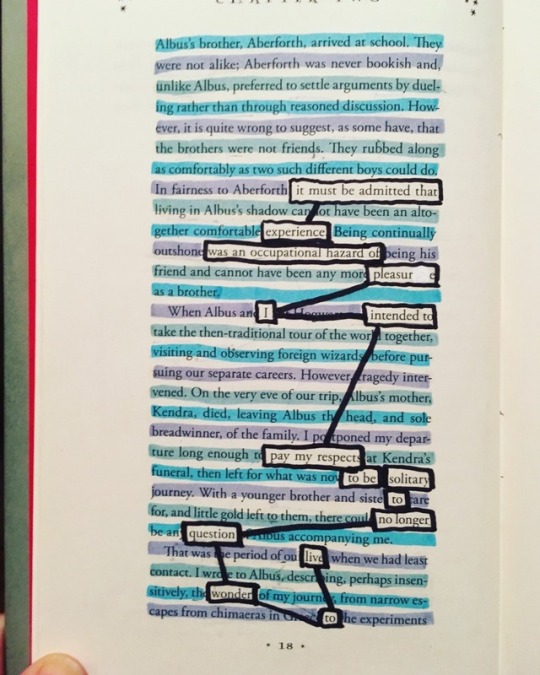 CHAPTER TWO
Albus's brother, Aberforth, arrived at school. They
were not alike; Aberforth was never bookish and,
unlike Albus, preferred to settle arguments by duel-
ing rather than through reasoned discussion. How-
ever, it is quite wrong to suggest, as some have, that
the brothers were not friends. They rubbed along
as comfortably as two such different boys could do.
In fairness to Aberforth it must be admitted that
living in Albus's shadow cannot have been an alto-
gether comfortable experience. Being continually
outshone was an occupational hazard of being his
friend and cannot have been any more pleasur e
as a brother.
When Albus and I Hogwarts intended to
take the then-traditional tour of the world together,
visiting and observing foreign wizards before pur-
suing our separate careers. However, tragedy inter-
vened. On the very eve of our trip, Albus's mother,
Kendra, died, leaving Albus the head, and sole
breadwinner, of the family. I postponed my depar-
ture long enough to pay my respects at Kendra's
funeral, then left for what was now to be solitary
journey. With a younger brother and sister to care
for, and little gold left to them, there could no longer
be any question Albus accompanying me.
That was the period of our live when we had least
contact. I wrote to Albus, describing, perhaps insen-
sitively, the wonder of my journey, from narrow es-
capes from chimaeras in to the experiments
• 18 •